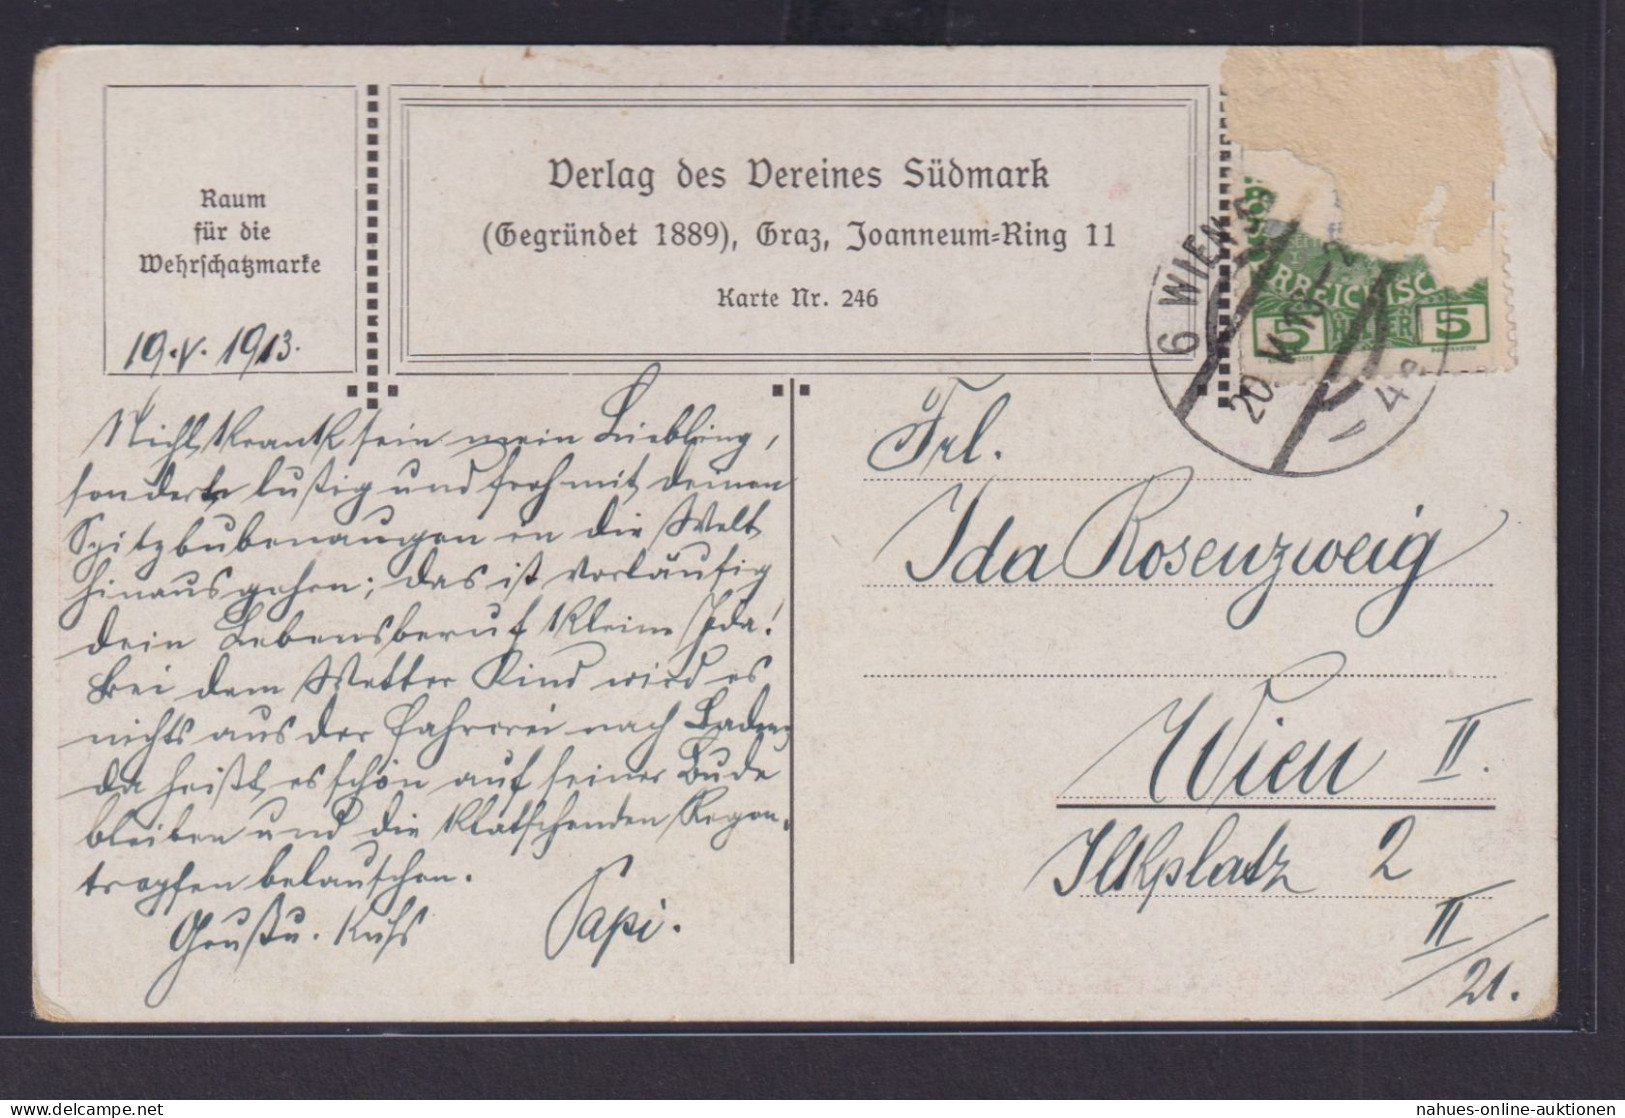 Raum
für die
Wehrschatzmarke
19.V.1913.
Verlag des Vereines Südmark
(Gegründet 1889), Graz, Joanneum=Ring 11
Karte Nr. 246
6 WIEN
20.V.13
RREICHISC
5 HELLER 5
Nicht krank sein mein Liebling,
sondern lustig und froh mit deinen
Spitzbubenaugen in die Welt
hinausgehen; das ist vorläufig
dein Lebensberuf kleine Ida!
Bei dem Wetter Kind wird es
nichts aus der Fahrerei nach Baden,
da heißt es schön auf seiner Bude
bleiben und die klatschenden Regen-
tropfen belauschen.
Gruß u. Kuß Papi.
Frl.
Ida Rosenzweig
Wien II.
Ilkplatz 2
II/21.
nahues-online-auktionen